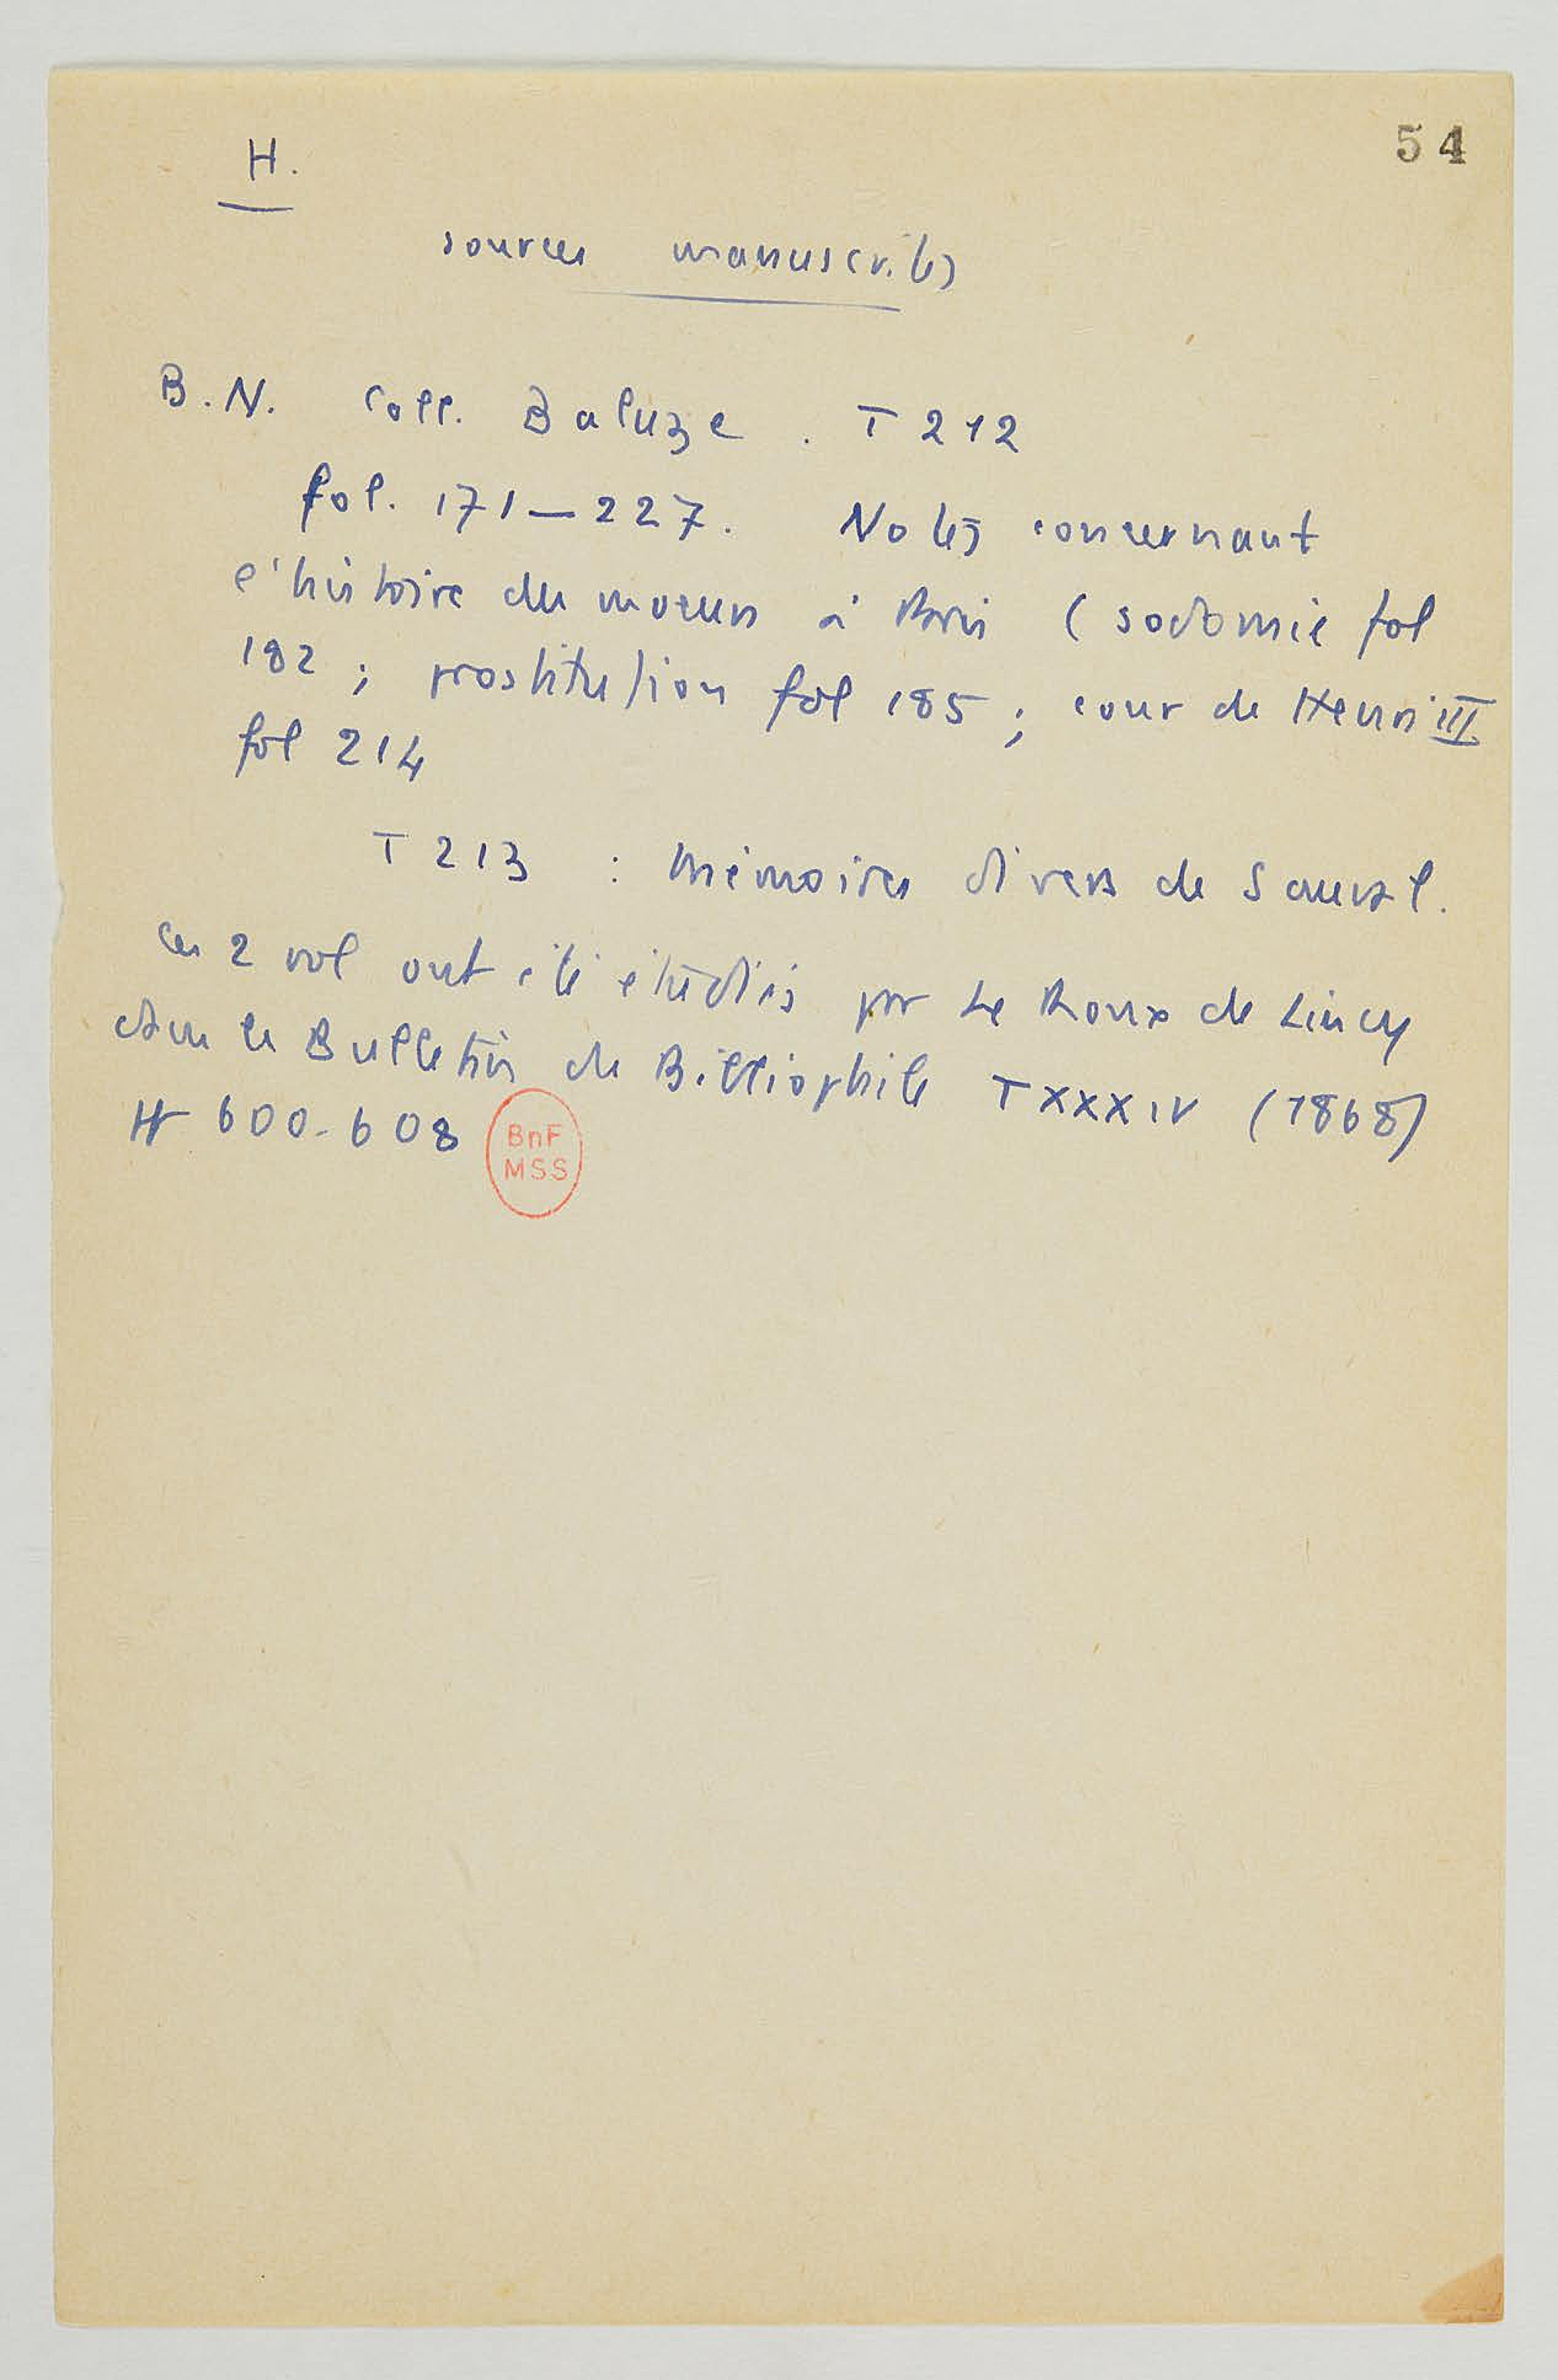 54
H.
sources manuscrites
B.N. Coll. Baluze. T 212
fol. 171–227. Notes concernant
l'histoire des moeurs à Paris (sodomie fol
182 ; prostitution fol 185 ; cour de Henri III
fol 214
T 213 : Mémoires divers de Sauval.
Ces 2 vol ont été étudiés par Le Roux de Lincy
dans le Bulletin du Bibliophile T XXXIV (1868)
pp 600-608
BnF
MSS